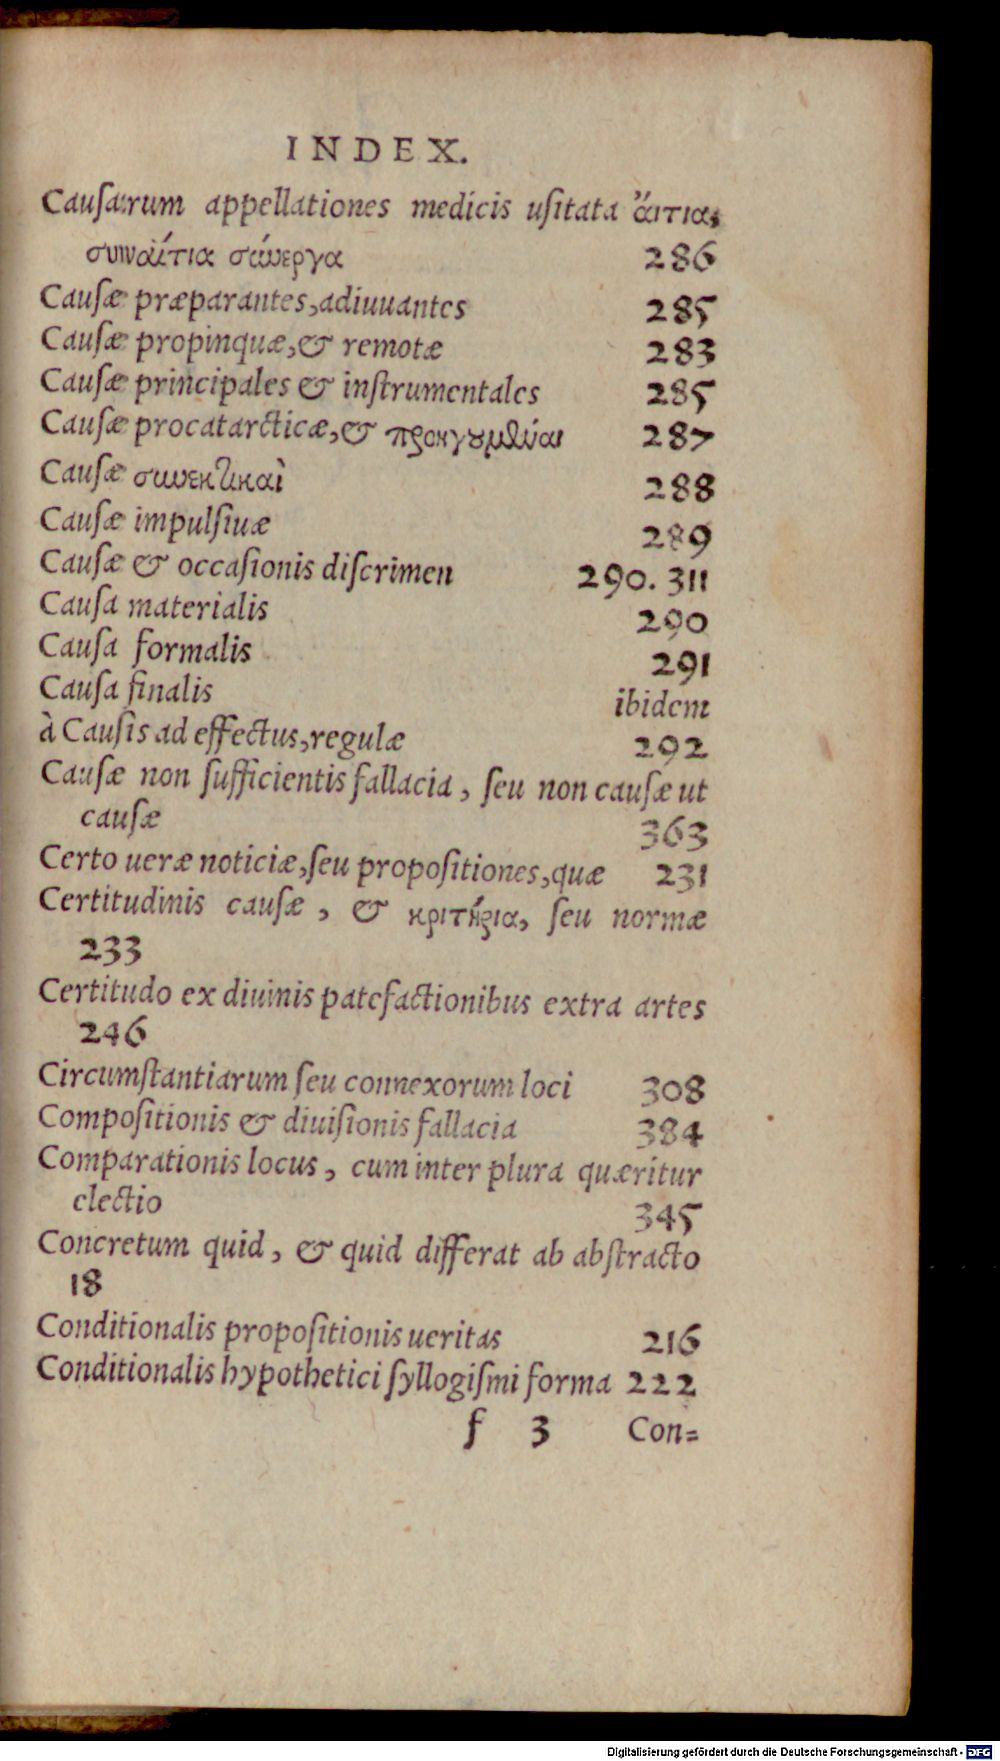 INDEX.
Cauſarum appellationes medicis uſitata ἄιτια,
συναίτια σύνεργα 286
Cauſæ præparantes, adiuuantes 285
Cauſæ propinquæ, & remotæ 283
Cauſæ principales & inſtrumentales 285
Cauſæ procatarcticæ, & προηγουμέναι 287
Cauſæ συνεκτικαὶ 288
Cauſæ impulſiuæ 289
Cauſæ & occaſionis diſcrimen 290. 311
Cauſa materialis 290
Cauſa formalis 291
Cauſa finalis ibidem
à Cauſis ad effectus, regulæ 292
Cauſæ non ſufficientis fallacia, ſeu non cauſæ ut
cauſæ 363
Certo ueræ noticiæ, ſeu propoſitiones, quæ 231
Certitudinis cauſæ, & κριτήρια, ſeu normæ
233
Certitudo ex diuinis patefactionibus extra artes
246
Circumſtantiarum ſeu connexorum loci 308
Compoſitionis & diuiſionis fallacia 384
Comparationis locus, cum inter plura quæritur
electio 345
Concretum quid, & quid differat ab abſtracto
18
Conditionalis propoſitionis ueritas 216
Conditionalis hypothetici ſyllogiſmi forma 222
f 3 Con=
Digitalisierung gefördert durch die Deutsche Forschungsgemeinschaft - DFG